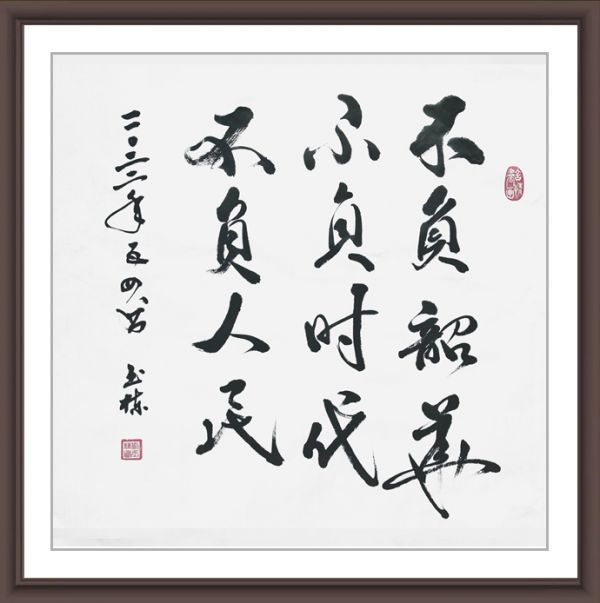 不負韶華
不負时代
不負人民
二〇二二年五四
玉栋